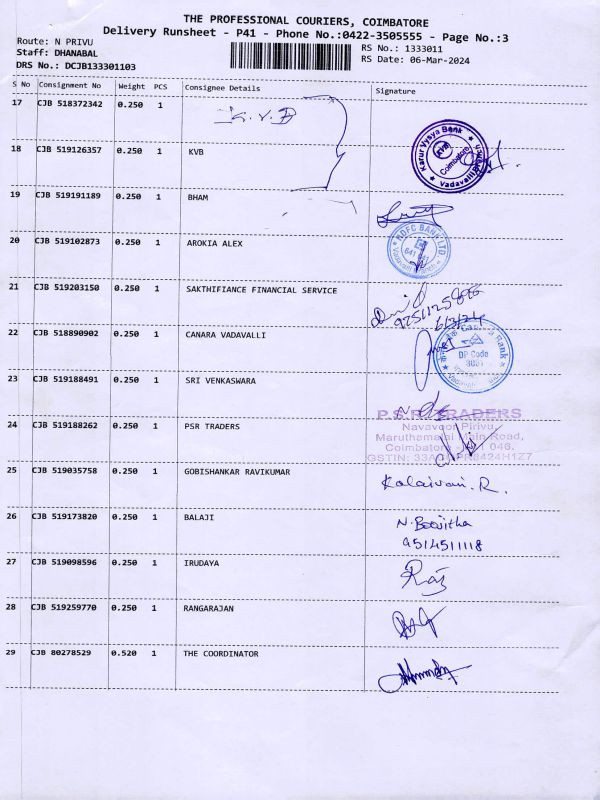 THE PROFESSIONAL COURIERS, COIMBATORE
Delivery Runsheet - P41 - Phone No.:0422-3505555 - Page No.:3
Route: N PRIVU
Staff: DHANABAL
DRS No.: DCJB133301103
RS No.: 1333011
RS Date: 06-Mar-2024
S No Consignment No Weight PCS Consignee Details Signature
17 CJB 518372342 0.250 1 K.V.B
18 CJB 519126357 0.250 1 KVB
Karur Vysya Bank
KVB
Coimbatore
Vadavalli
19 CJB 519191189 0.250 1 BHAM
20 CJB 519102873 0.250 1 AROKIA ALEX
HDFC BANK LTD.
21 CJB 519203150 0.250 1 SAKTHIFIANCE FINANCIAL SERVICE
6/3/24
22 CJB 518890902 0.250 1 CANARA VADAVALLI
Bank
DP Code
23 CJB 519188491 0.250 1 SRI VENKASWARA
24 CJB 519188262 0.250 1 PSR TRADERS
P.S.R. TRADERS
Navavoor Pirivu,
Maruthamalai Main Road,
Coimbatore - 641 046.
GSTIN:
25 CJB 519035758 0.250 1 GOBISHANKAR RAVIKUMAR
Kalaivani. R.
26 CJB 519173820 0.250 1 BALAJI
9514511118
27 CJB 519098596 0.250 1 IRUDAYA
Raj
28 CJB 519259770 0.250 1 RANGARAJAN
29 CJB 80278529 0.520 1 THE COORDINATOR